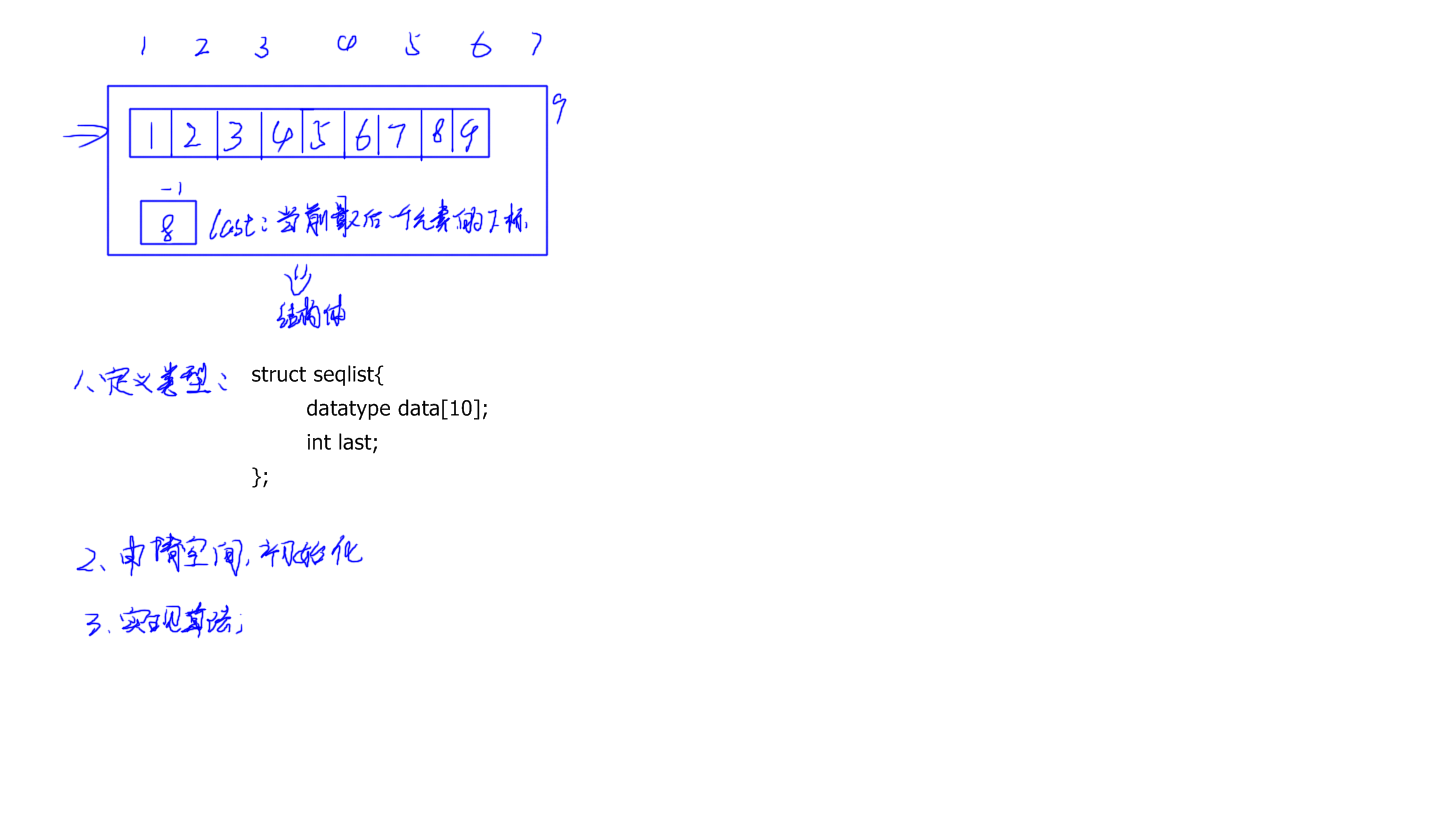 1 2 3 4 5 6 7
9
1 2 3 4 5 6 7 8 9
-1
8 last:当前最后一个元素的下标
结构体
1、定义类型: struct seqlist{
datatype data[10];
int last;
};
2、申请空间,初始化
3、实现算法;